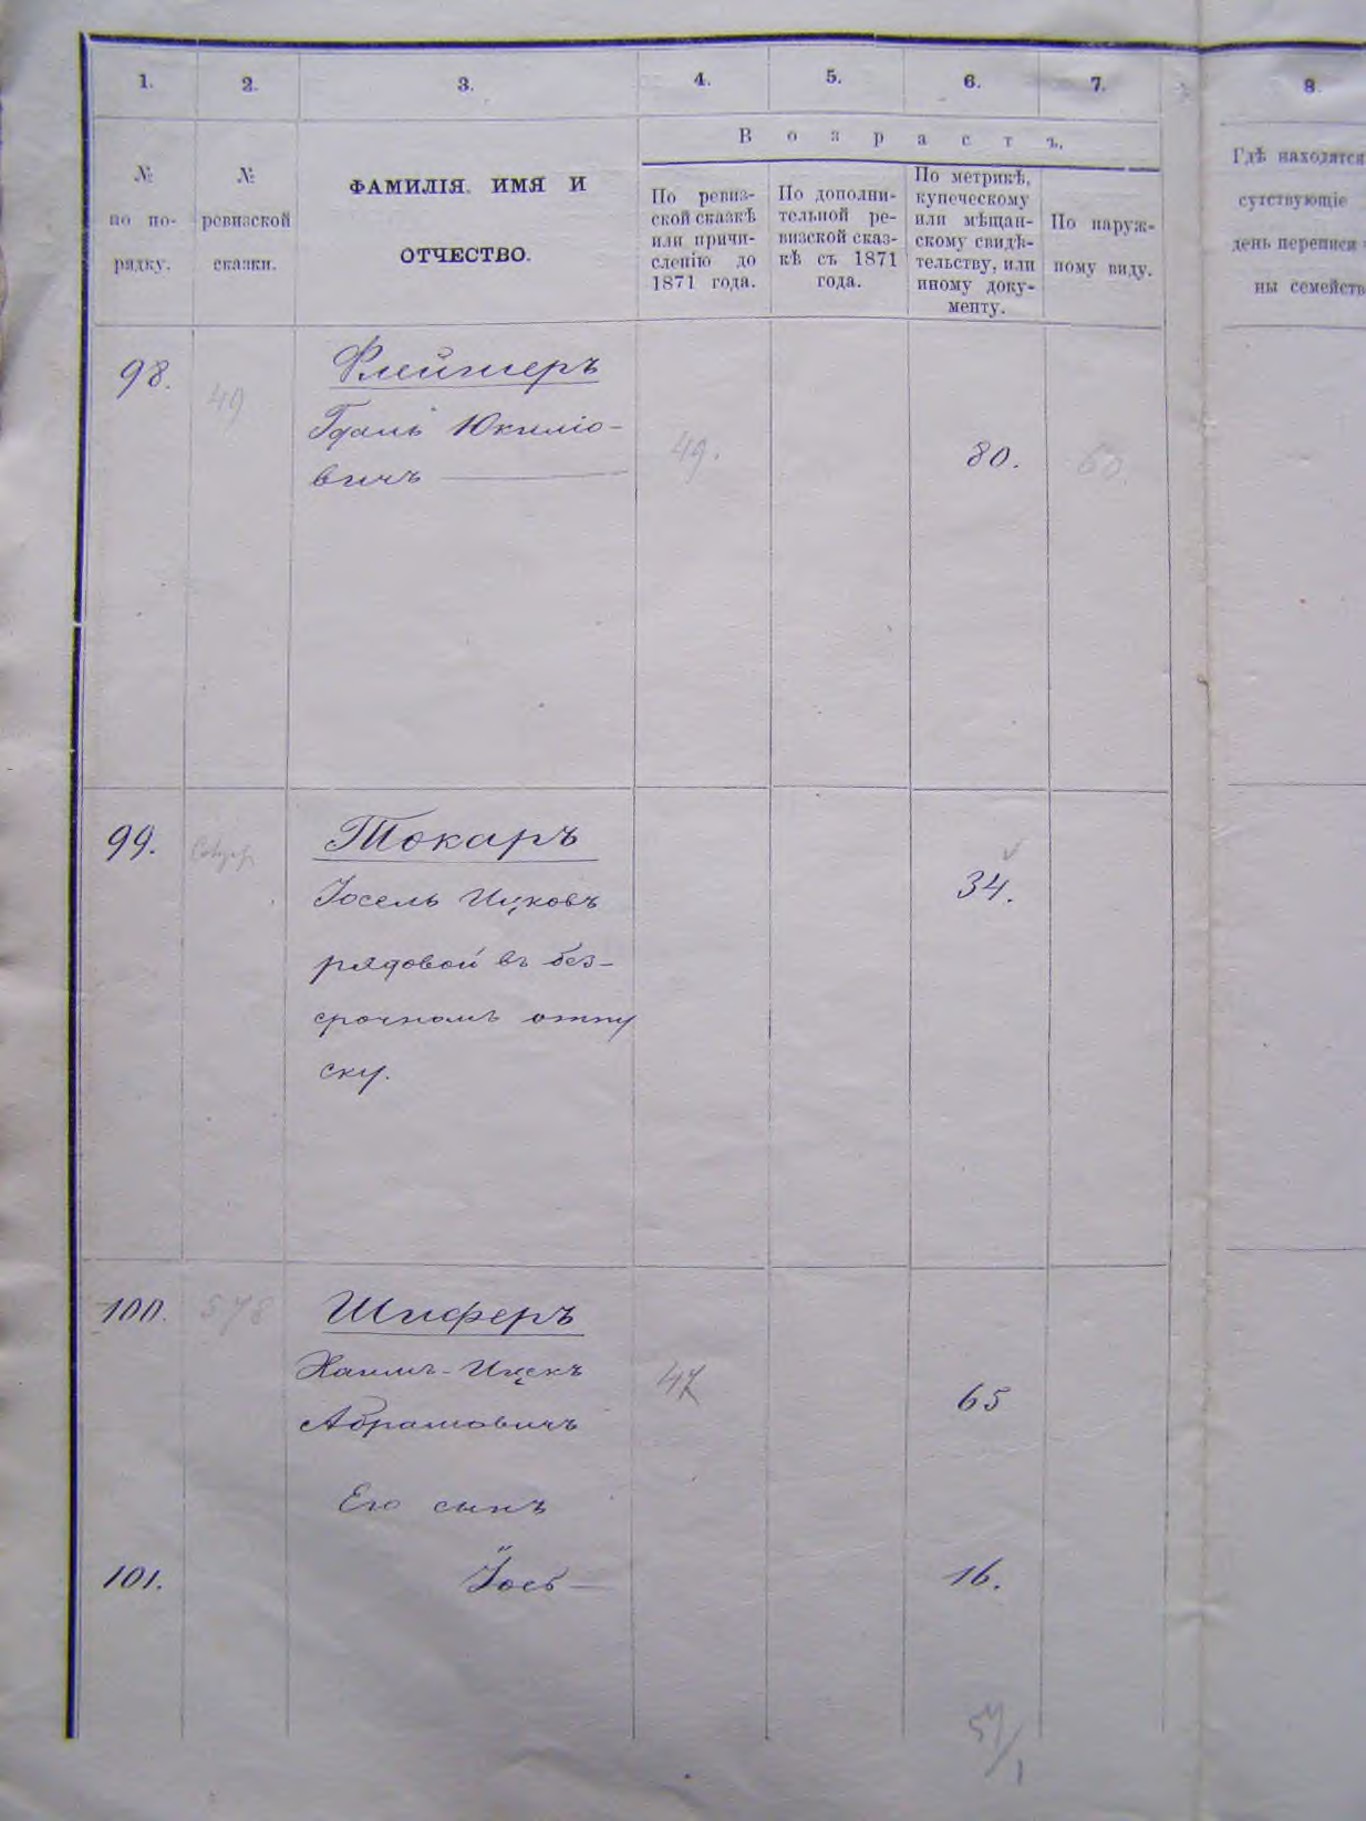 1. 2. 3. 4. 5. 6. 7. 8.
Возрастъ.
№
по по-
рядку.
№
ревизской
сказки.
ФАМИЛІЯ. ИМЯ И
ОТЧЕСТВО.
По ревиз-
ской сказкѣ
или причи-
сленію до
1871 года.
По дополни-
тельной ре-
визской сказ-
кѣ съ 1871
года.
По метрикѣ,
купеческому
или мѣщан-
скому свидѣ-
тельству, или
иному доку-
менту.
По наруж-
ному виду.
Гдѣ находятся
сутствующіе
день переписи
ны семейств
98. 49 Флейшеръ
Юкиліо-
вичъ 49. 80. 60
99. Токаръ
Іосель Ицковъ 34.
рядовой въ без-
срочномъ отпу
ску.
100. 578 Шиферъ
Хаимъ-Ицекъ 47 65
Абрамовичъ
Его сынъ
101. Іось 16.
54/1